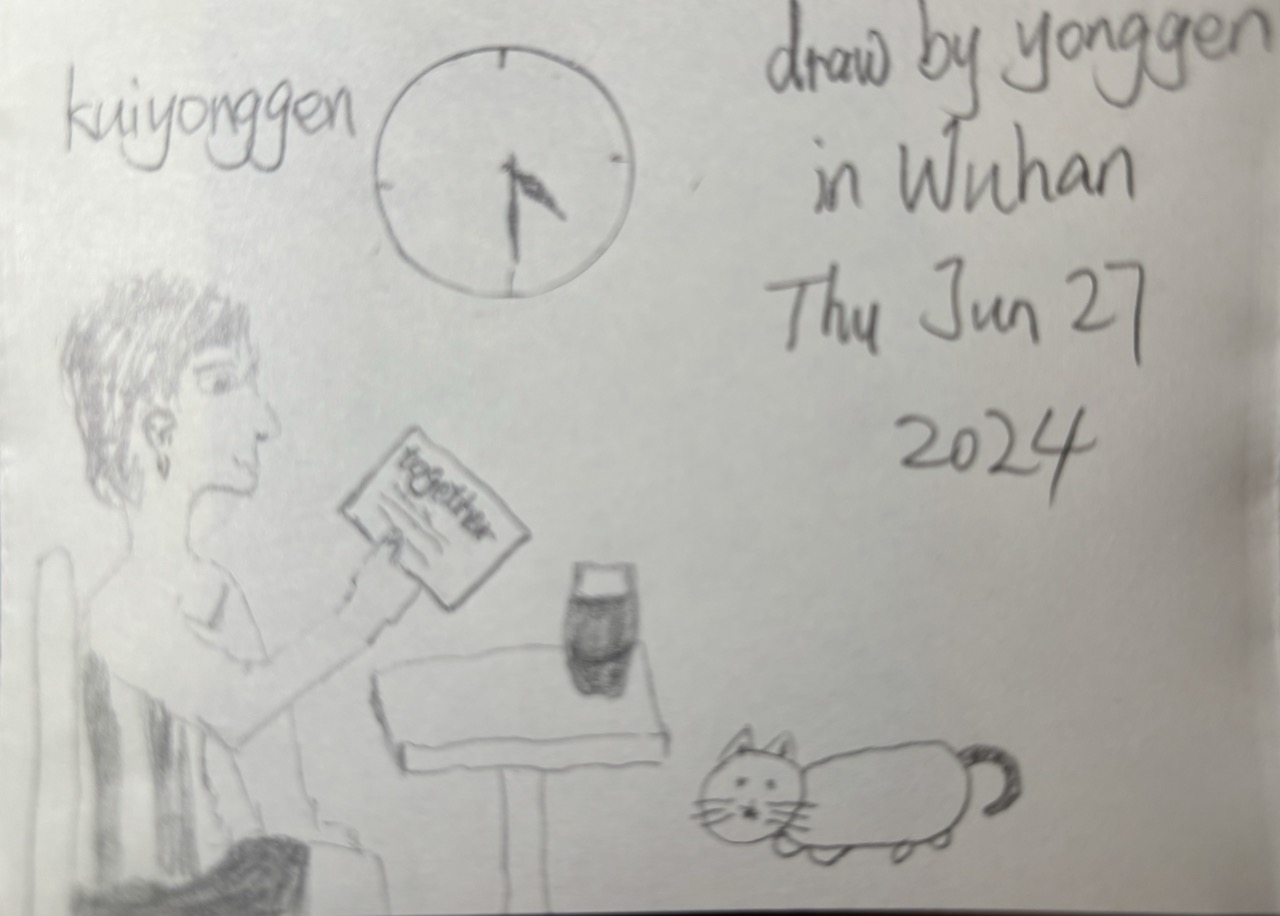 kuiyonggen
draw by yonggen
in Wuhan
Thu Jun 27
2024
together